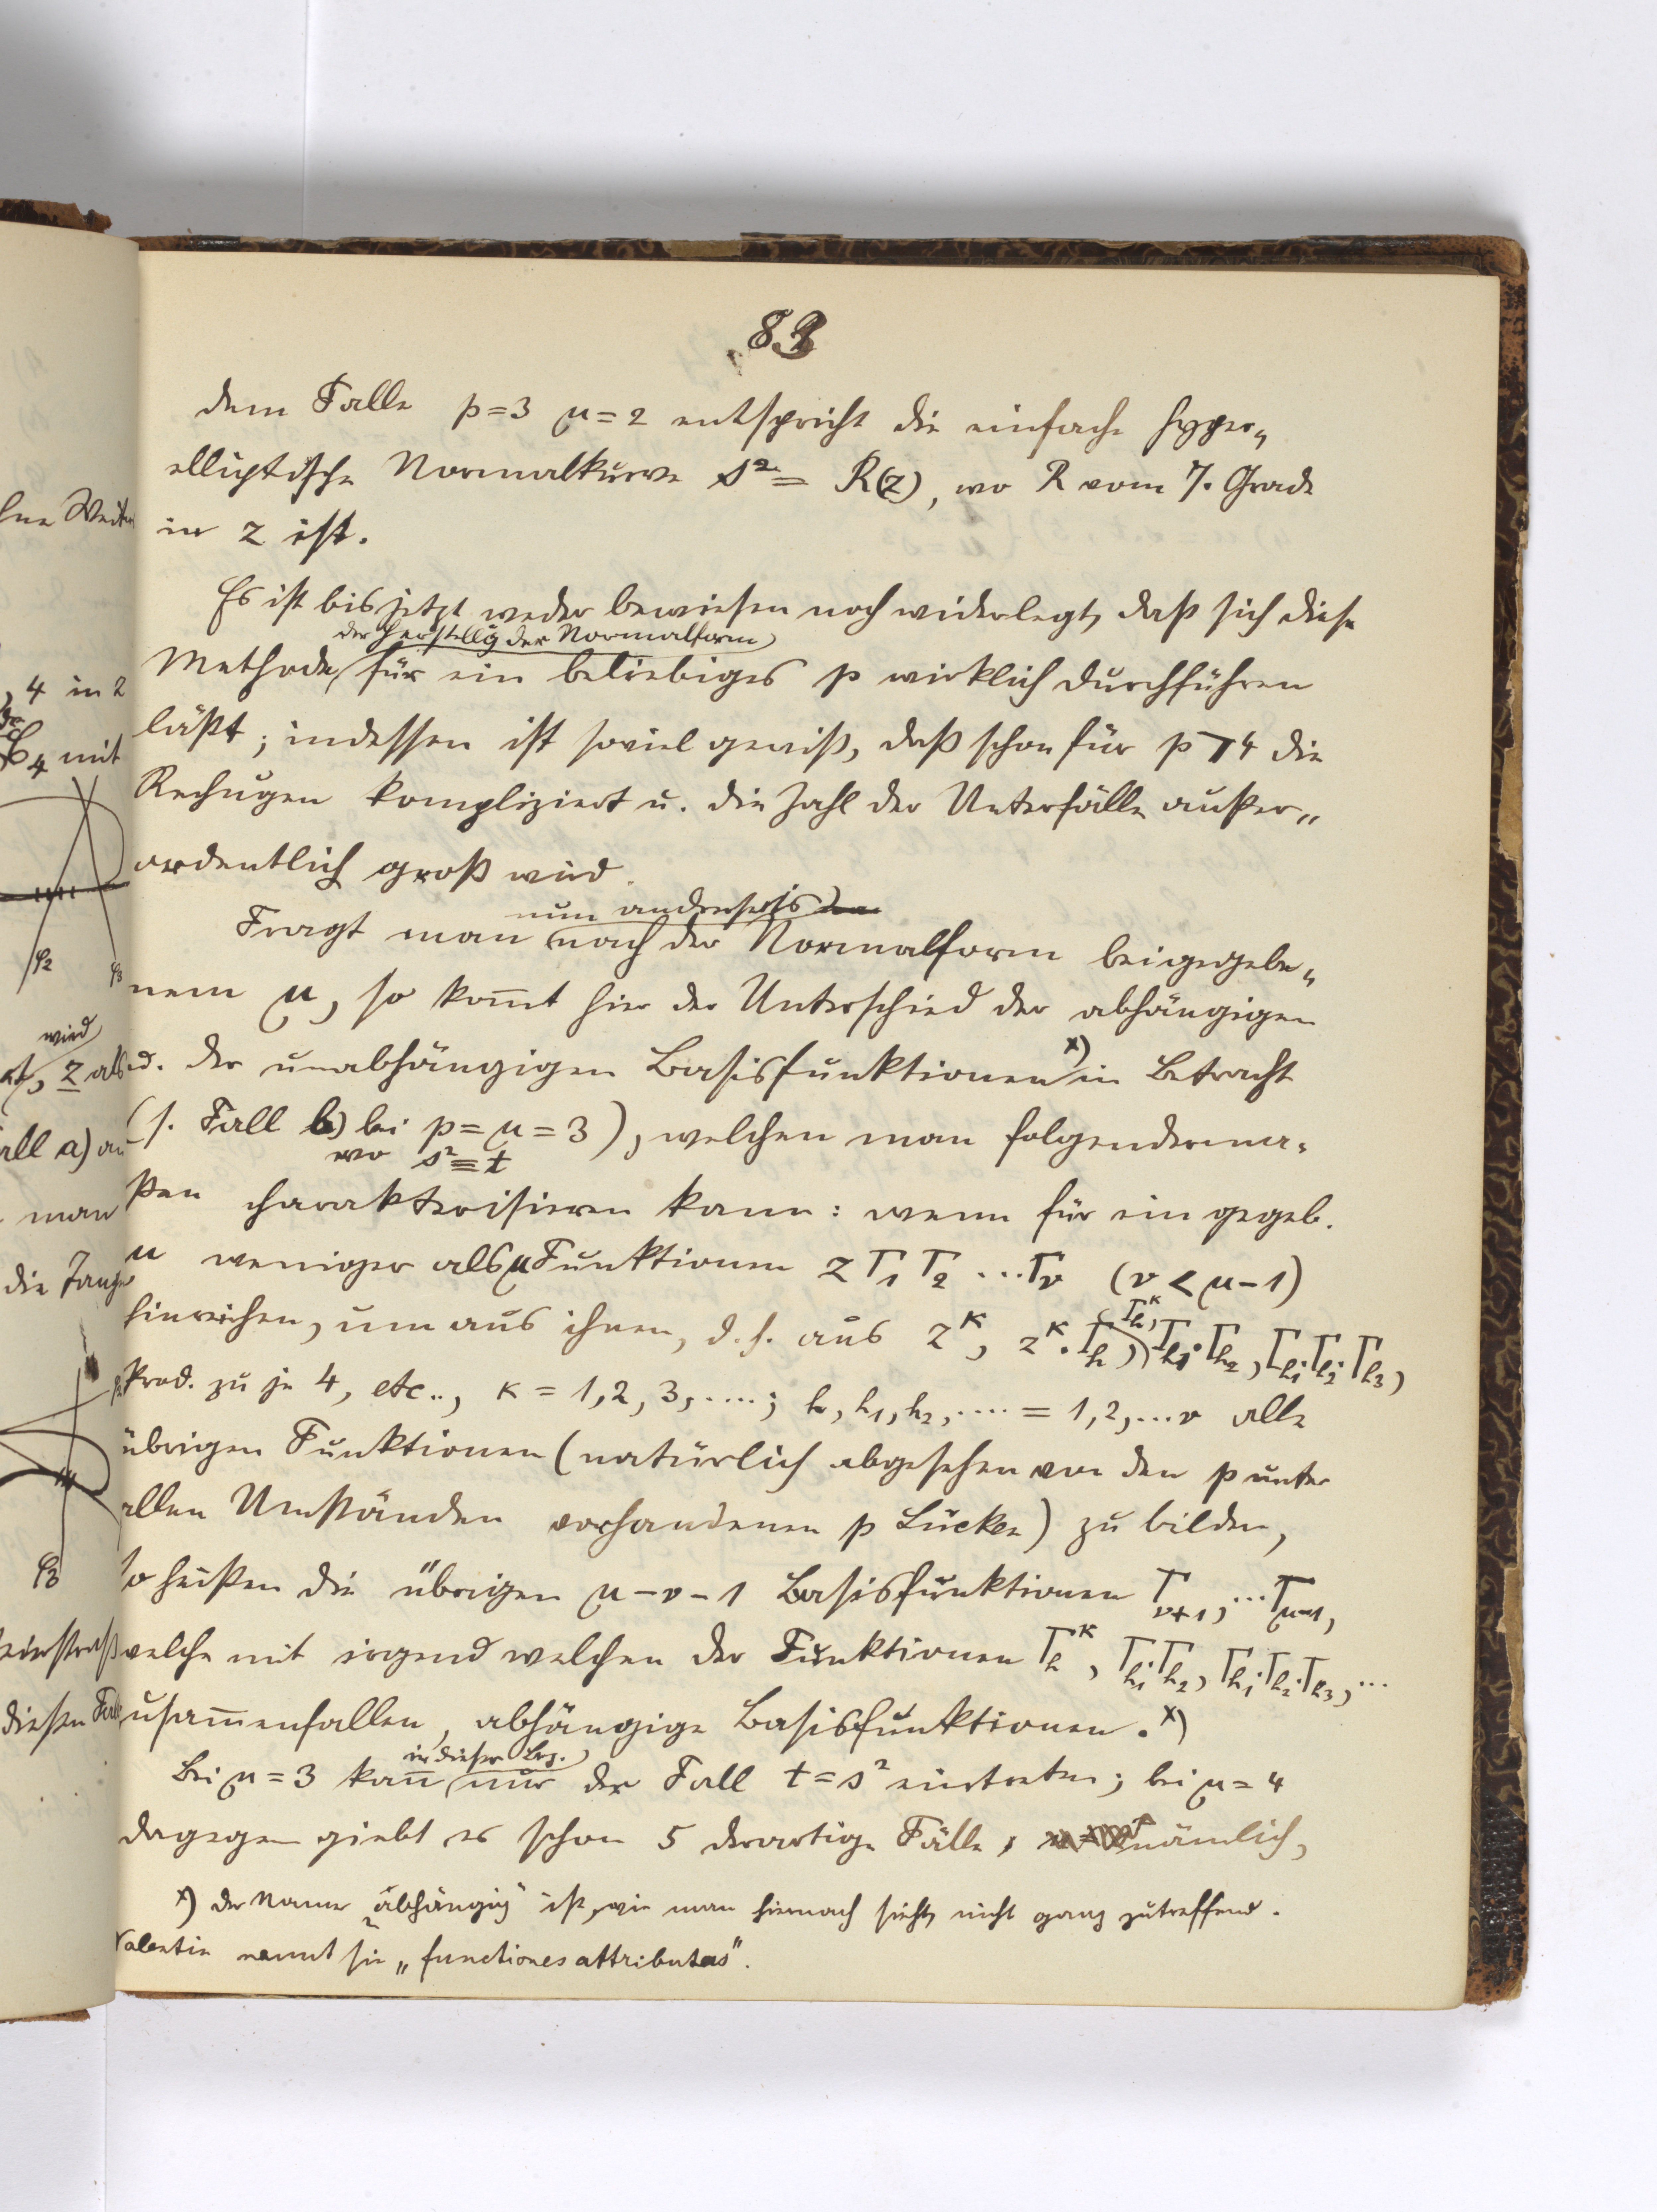 83
dem Falle p=3 μ=2 entspricht die einfache hyper„
elliptische Normalkurve s² = R(z), wo R vom 7. Grade
in z ist.
Es ist bis jetzt weder bewiesen noch widerlegt, daß sich diese
der Herstellg der Normalform
Methode für ein beliebiges p wirklich durchführen
läßt; indessen ist soviel gewiß, daß schon für p > 4 die
Rechnugen kompliziert u. die Zahl der Unterfälle außer„
ordentlich groß wird.
nun anderseits
Fragt man nach der Normalform bei gegebe„
nem μ, so kom̄t hier der Unterschied der abhängigen
u. der unabhängigen Basisfunktionen x) in Betracht
(s. Fall b) bei p = μ = 3), welchen man folgenderma-
wo s² = t
ßen charakterisieren kann: wenn für ein gegeb.
μ weniger als μ Funktionen z T₁ T₂ ... Tν (ν < μ-1)
hinreichen, um aus ihnen, d.h. aus z^κ, z^κ·T_h, T_h^κ, T_h₁·T_h₂, T_h₁·T_h₂·T_h₃,
Prod. zu je 4, etc.., κ = 1,2,3,....; h, h₁, h₂, .... = 1,2,...ν alle
übrigen Funktionen (natürlich abgesehen von den p unter
allen Umständen vorhandenen p Lücken) zu bilden,
so heißen die übrigen μ-ν-1 Basisfunktionen T_ν+1, ... T_μ-1,
welche mit irgend welchen der Funktionen T_h^κ, T_h₁·T_h₂, T_h₁·T_h₂·T_h₃, ...
zusam̄enfallen, abhängige Basisfunktionen. x)
in dieser Bez.
Bei μ = 3 kan̄ nur der Fall t = s² eintreten; bei μ = 4
dagegen giebt es schon 5 derartige Fälle, nämlich,
x) Der Name „abhängig" ist, wie man hiernach sieht, nicht ganz zutreffend.
Valentin nennt sie „functiones attributas".
wird
, 4 in z
C₄ mit
φ₂ φ₃
z als
all a)
man
die
φ₃
diesen